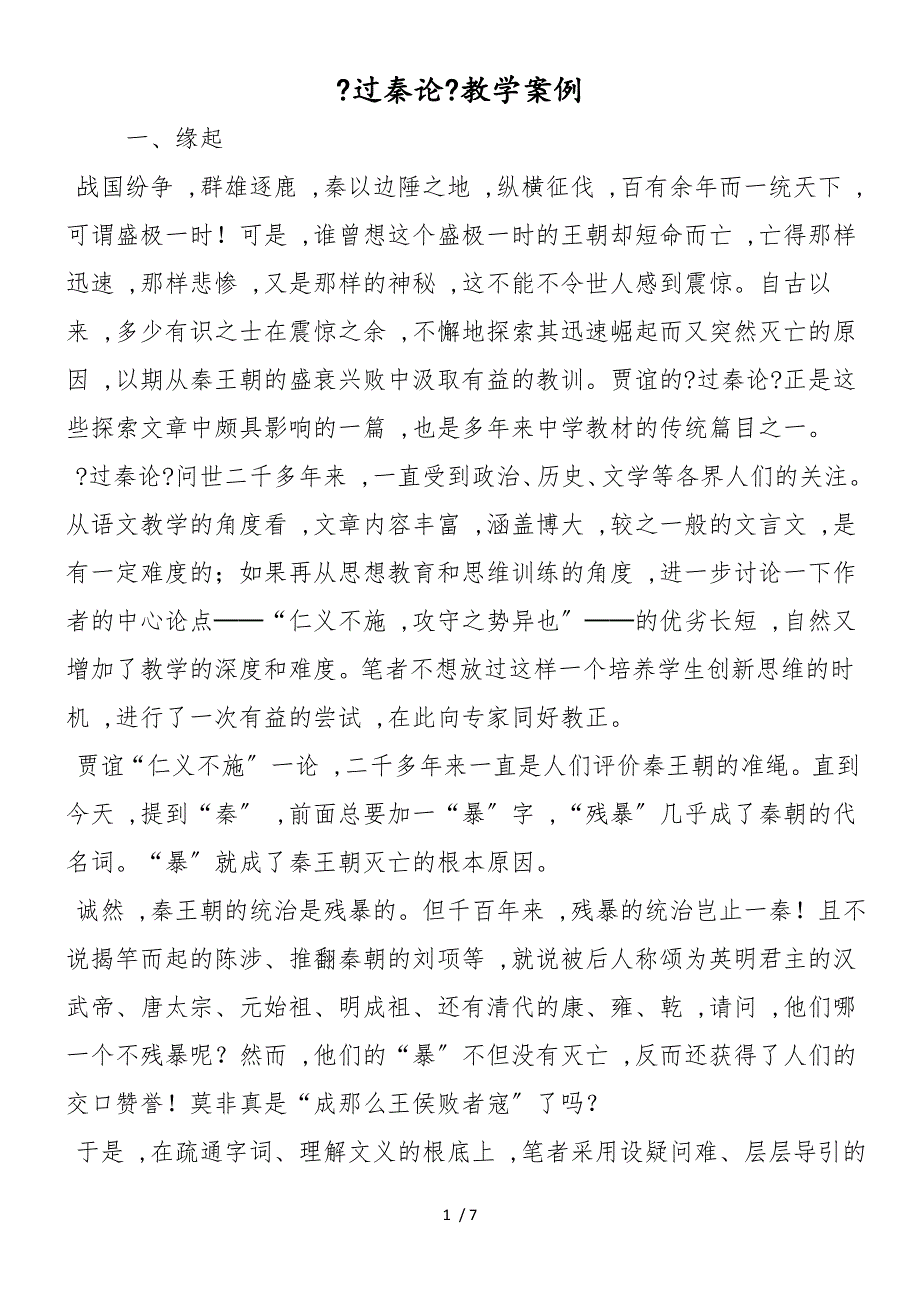 ?过秦论?教学案例
一、缘起
战国纷争 ,群雄逐鹿 ,秦以边陲之地 ,纵横征伐 ,百有余年而一统天下 ,
可谓盛极一时！可是 ,谁曾想这个盛极一时的王朝却短命而亡 ,亡得那样
迅速 ,那样悲惨 ,又是那样的神秘 ,这不能不令世人感到震惊。自古以
来 ,多少有识之士在震惊之余 ,不懈地探索其迅速崛起而又突然灭亡的原
因 ,以期从秦王朝的盛衰兴败中汲取有益的教训。贾谊的?过秦论?正是这
些探索文章中颇具影响的一篇 ,也是多年来中学教材的传统篇目之一。
?过秦论?问世二千多年来 ,一直受到政治、历史、文学等各界人们的关注。
从语文教学的角度看 ,文章内容丰富 ,涵盖博大 ,较之一般的文言文 ,是
有一定难度的；如果再从思想教育和思维训练的角度 ,进一步讨论一下作
者的中心论点——“仁义不施 ,攻守之势异也〞——的优劣长短 ,自然又
增加了教学的深度和难度。笔者不想放过这样一个培养学生创新思维的时
机 ,进行了一次有益的尝试 ,在此向专家同好教正。
贾谊“仁义不施〞一论 ,二千多年来一直是人们评价秦王朝的准绳。直到
今天 ,提到“秦〞 ,前面总要加一“暴〞字 ,“残暴〞几乎成了秦朝的代
名词。“暴〞就成了秦王朝灭亡的根本原因。
诚然 ,秦王朝的统治是残暴的。但千百年来 ,残暴的统治岂止一秦！且不
说揭竿而起的陈涉、推翻秦朝的刘项等 ,就说被后人称颂为英明君主的汉
武帝、唐太宗、元始祖、明成祖、还有清代的康、雍、乾 ,请问 ,他们哪
一个不残暴呢？然而 ,他们的“暴〞不但没有灭亡 ,反而还获得了人们的
交口赞誉！莫非真是“成那么王侯败者寇〞了吗？
于是 ,在疏通字词、理解文义的根底上 ,笔者采用设疑问难、层层导引的
1 / 7